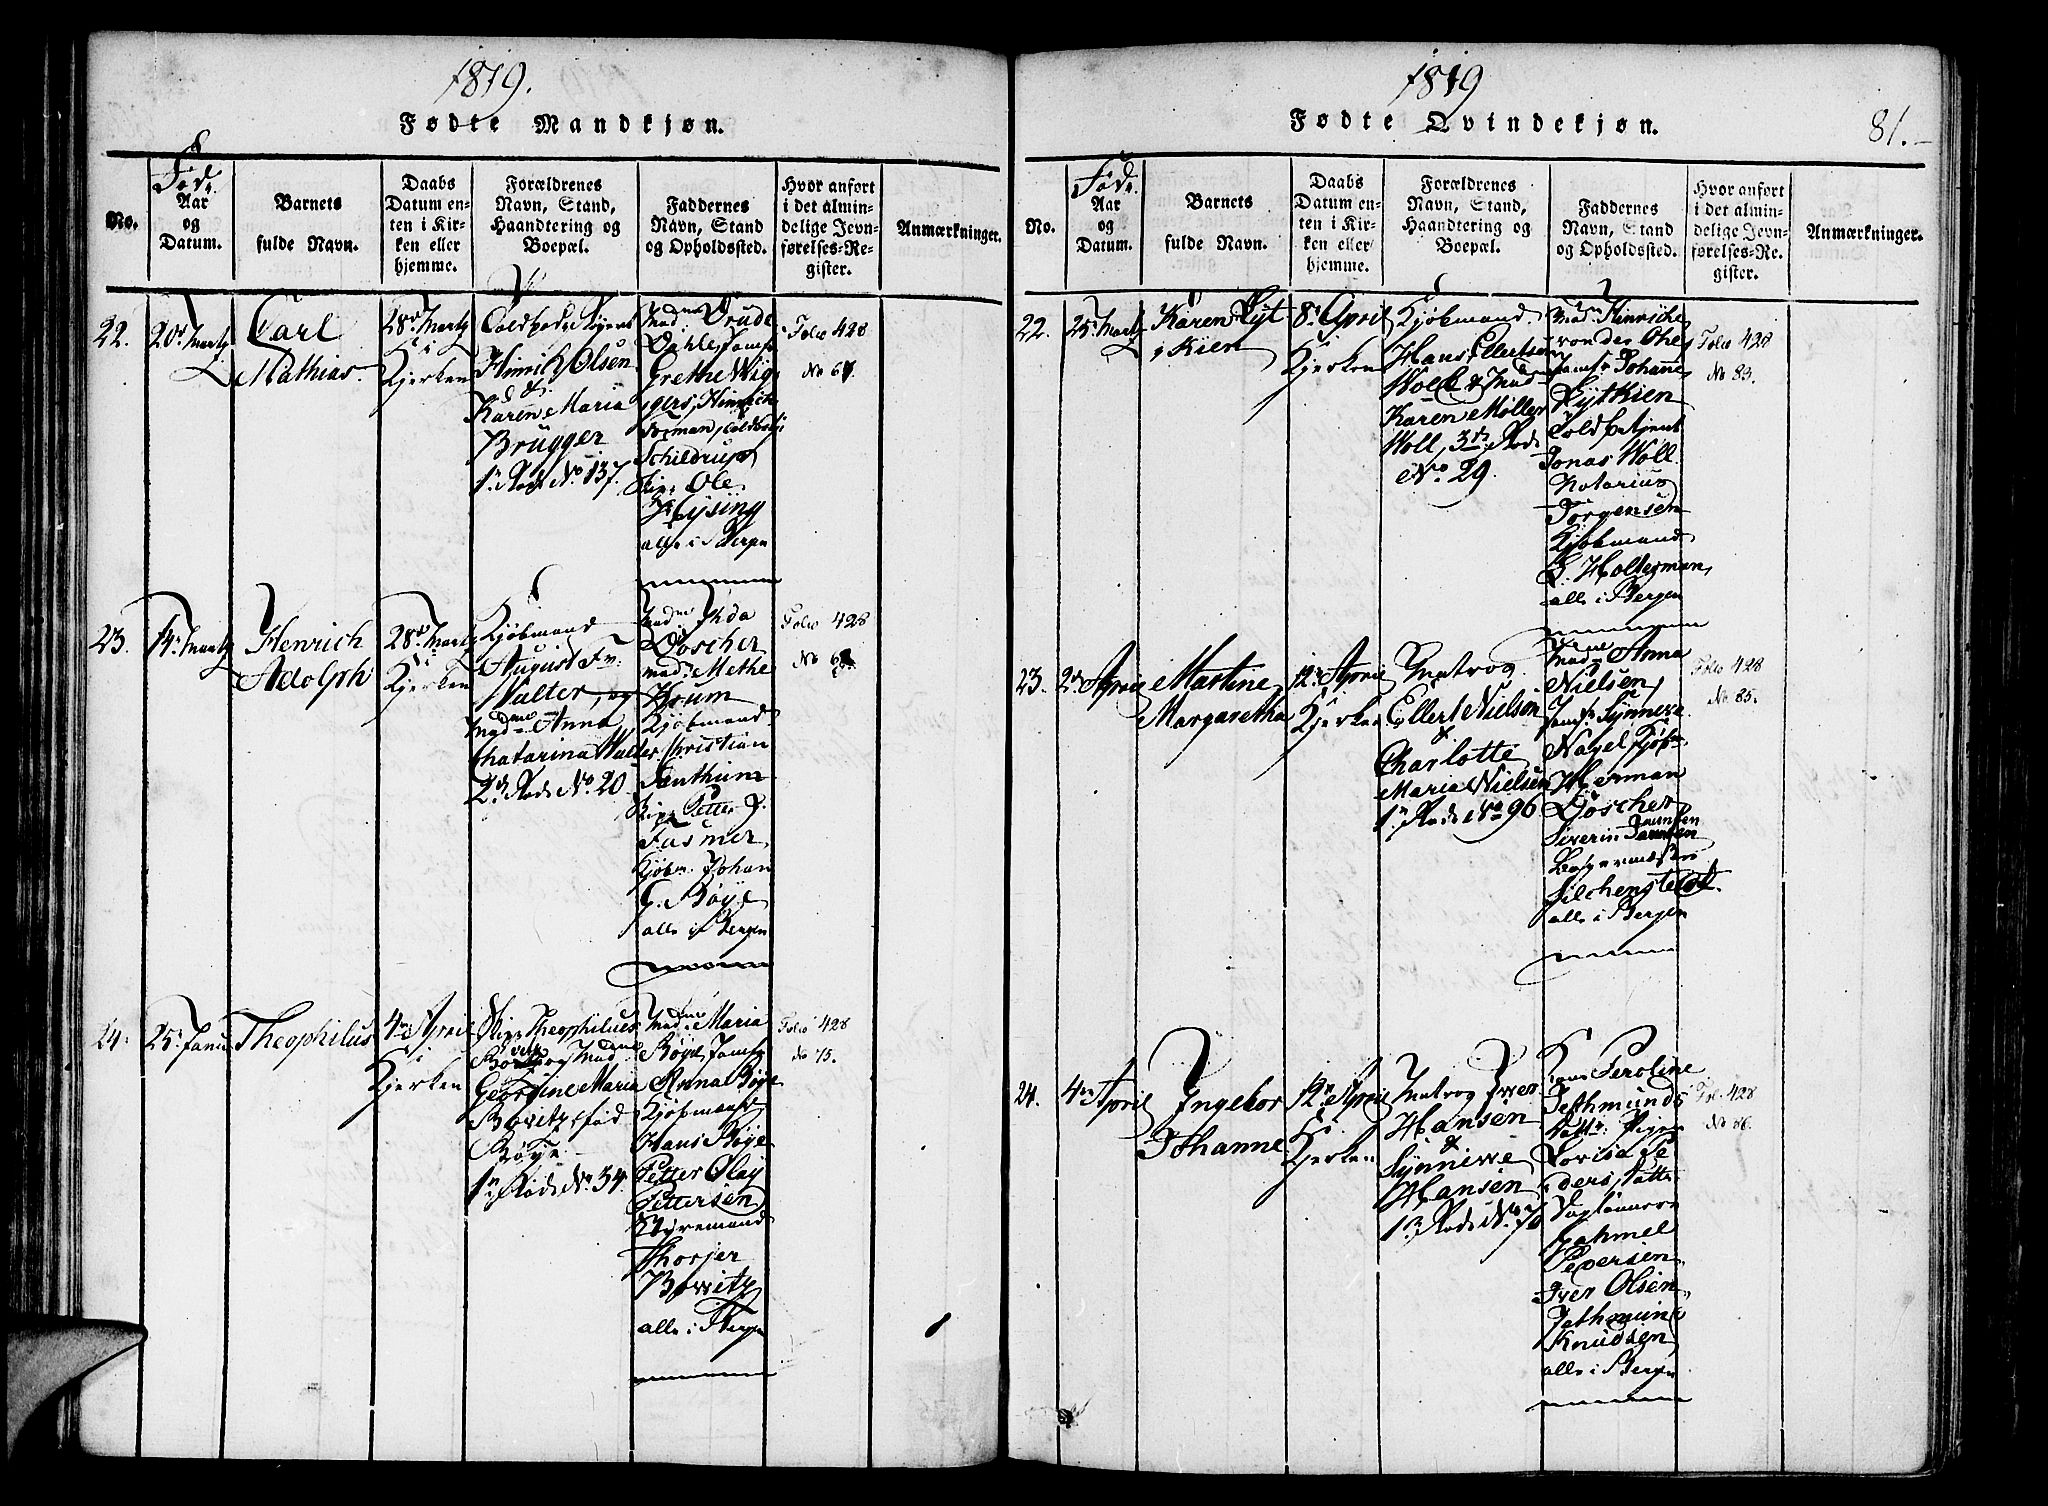 1819.
Fødte Mandkjøn.
No.
Føde
Aar
og
Datum.
Barnets
fulde Navn.
Daabs
Datum en-
ten i Kir-
ken eller
hjemme.
Forældrenes
Navn, Stand,
Haandtering og
Boepæl.
Faddernes
Navn, Stand
og Opholdssted.
Hvor anført
i det almin-
delige Jevn-
førelses-Re-
gister.
Anmærkninger.
22.
20de Martz
Carl
Mathias.
28de Martz
i
Kjerken
Hinrich Olsen
&
Karen Maria
Brügger
1te Rode No. 137.
Madme Drude
Dahle, Jomfr
Grethe Wig
gers, Hinrich
Schildrup
Ole
Heysing
alle i Bergen
Folio 428
No 67.
23.
14de Martz
Henrich
Adolph
28de Martz
i
Kjerken
Kjøbmand
August Fr.
Walter, og
Madme Anna
Chatarina Walter
2de Rode No. 20
Madme Ihda
Döscher
Mad: Methe
Krum
Kjøbmand
Christian
Janthum
Petter J.
Fasmer,
Kjøbm. Johan
G. Böye
alle i Bergen
Folio 428
No 68.
24.
25de Janu
Theophilus
4de April
i
Kjerken
Theophilus
Bowitz og Madme
Georgine Maria
Bowitz fød
Böye.
1te Rode No. 34.
Madme Maria
Böye, Jomfr
Anna Böye
Kjøbmand
Hans Böye
Petter Olay
Pettersen
Styremand
Thorjer
Bowitz
alle i Bergen
Folio 428
No 75.
1819
Fødte Qvindekjøn.
81.
No.
Føde
Aar
og
Datum.
Barnets
fulde Navn.
Daabs
Datum en-
ten i Kir-
ken eller
hjemme.
Forældrenes
Navn, Stand,
Haandtering og
Boepæl.
Faddernes
Navn, Stand
og Opholdssted.
Hvor anført
i det almin-
delige Jevn-
førelses-Re-
gister.
Anmærkninger.
22.
25de Martz
Karen Lyt
kien
8de April
i
Kjerken
Kjøbmand
Hans Ellertsen
Woll & Mad
Karen Møller
Woll, 3de Rode
No. 29.
Madm Hinriche
von der Ohe,
Jomfr Johanne
Lythkien
Jonas Woll
Notarius
Jörgensen
Kjøbmand
Holterman,
alle i Bergen
Folio 428
No 83.
23.
2de April
Martine
Margaretha
12te April
i
Kjerken
Matros
Ellert Nielsen
&
Charlotte
Maria Nielsen
1te Rode No 96
Madme Anna
Nielsen,
Jomfr Synneva
Nagel Kjøbm
Herman
Döscher
Siverin Jannsen
Silchenstedt.
alle i Bergen
Folio 428
No. 85.
24.
4de April
Ingebor
Johanne
12te April
i
Kjerken
Matros Iver
Hansen
&
Synnewe
Hansen
1te Rode No. 76
Peroline
Jethmunds
Datter Pigen
Lovisa Pe
dersDatter
Jahmel
Pedersen
Iver Olsen,
Jethmund
Knudsen
alle i Bergen
Fol. 428
No 86.